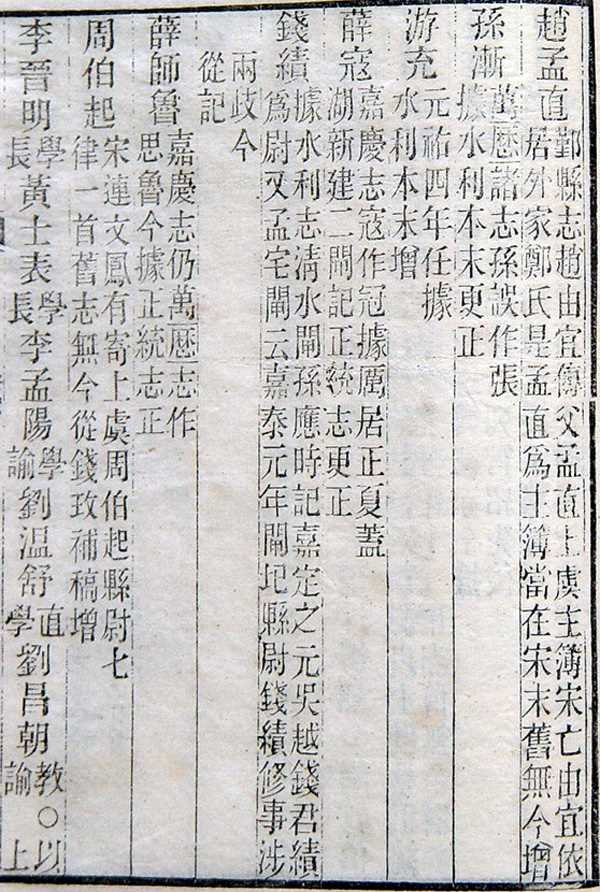 趙孟直鄞縣志趙由宜傳父孟直上虞主簿宋亡由宜依
居外家鄭氏是孟直爲主簿當在宋末舊無今增
孫漸萬歷諸志孫誤作張
據水利本末更正
游充元祐四年任據
水利本末增
薛寇嘉慶志寇作冠據厲居正夏蓋
湖新建二閘記正統志更正
錢績據水利志淸水閘孫應時記嘉定之元吳越錢君績
爲尉又孟宅閘云嘉泰元年閘圮縣尉錢績修事涉
兩歧今
從記
薛師魯嘉慶志仍萬歷志作
思魯今據正統志正
周伯起宋連文鳳有寄上虞周伯起縣尉七
律一首舊志無今從錢玫補稿增
李晉明學長黃士表學長李孟陽學諭劉温舒直學劉昌朝教諭○以上